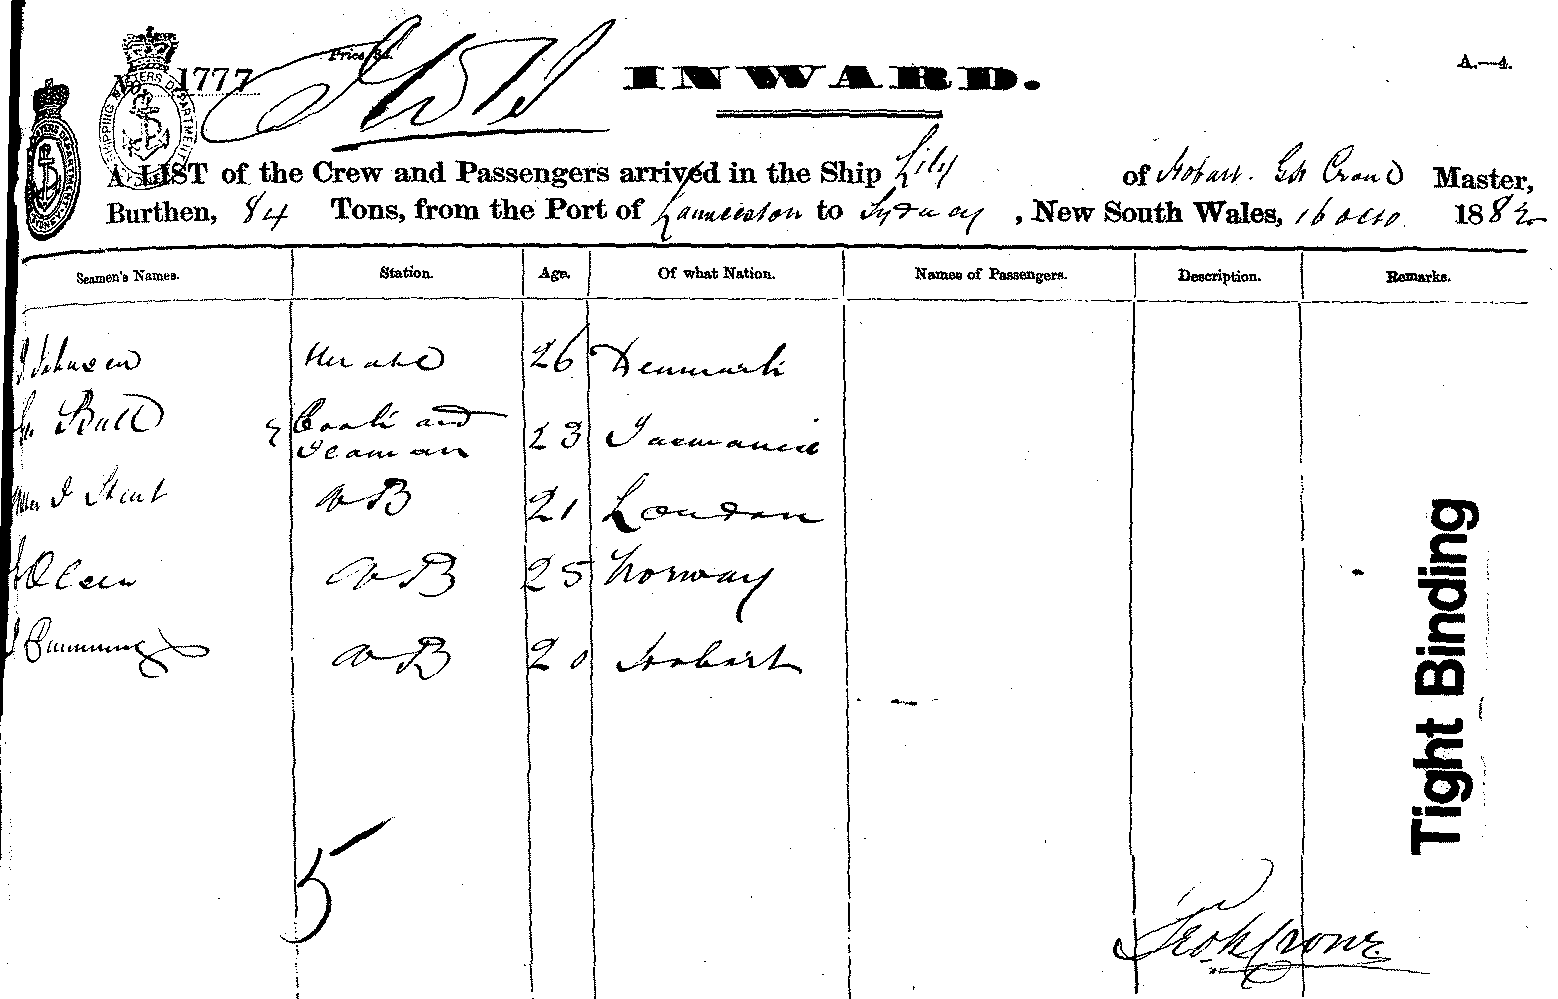 No. 1777 Price 3d. INWARD. A.—4.
SHIPPING MASTERS DEPARTMENT
A LIST of the Crew and Passengers arrived in the Ship Lily of Hobart. Master,
Burthen, 84 Tons, from the Port of Launceston to Sydney, New South Wales, 16 Octo 1882
Seamen's Names. Station. Age. Of what Nation. Names of Passengers. Description. Remarks.
J Johnsen Mate 26 Denmark
Cook and
Seaman 23 Tasmania
AB 21 London
Olsen AB 25 Norway
J Cumming AB 20 Hobart
5
Tight Binding